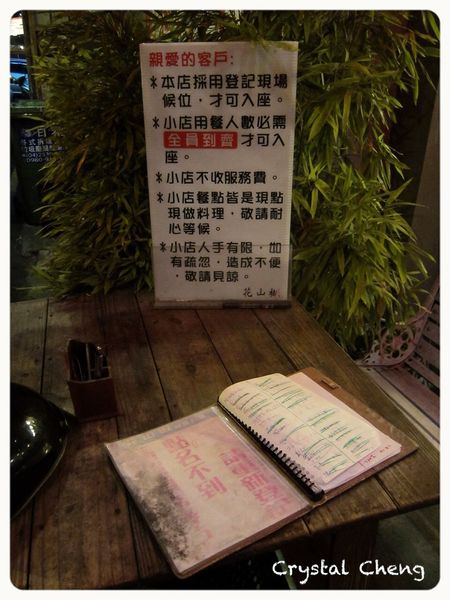 親愛的客戶:
*本店採用登記現場
候位，才可入座。
*小店用餐人數必需
全員到齊才可入
座。
*小店不收服務費。
*小店餐點皆是現點
現做料理，敬請耐
心等候。
*小店人手有限，如
有疏忽，造成不便
，敬請見諒。
花山椒
點名不到
Crystal Cheng